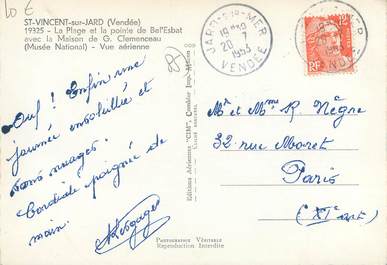 10 €
ST-VINCENT-sur-JARD (Vendée)
19325 - La Plage et la pointe de Bel'Esbat
avec la Maison de G. Clemenceau
(Musée National) - Vue aérienne
85
JARD-S-MER
20 - 7
1953
VENDÉE
Ouf ! Enfin une
journée ensoleillée et
sans nuages.
Cordiale poignée de
main.
Editions Aériennes "CIM", Combier Imp. Mâcon
Mr et Mme R. Nègre
32 rue Moret
Paris
(XIe arrt)
PHOTOGRAPHIE VÉRITABLE
Reproduction Interdite